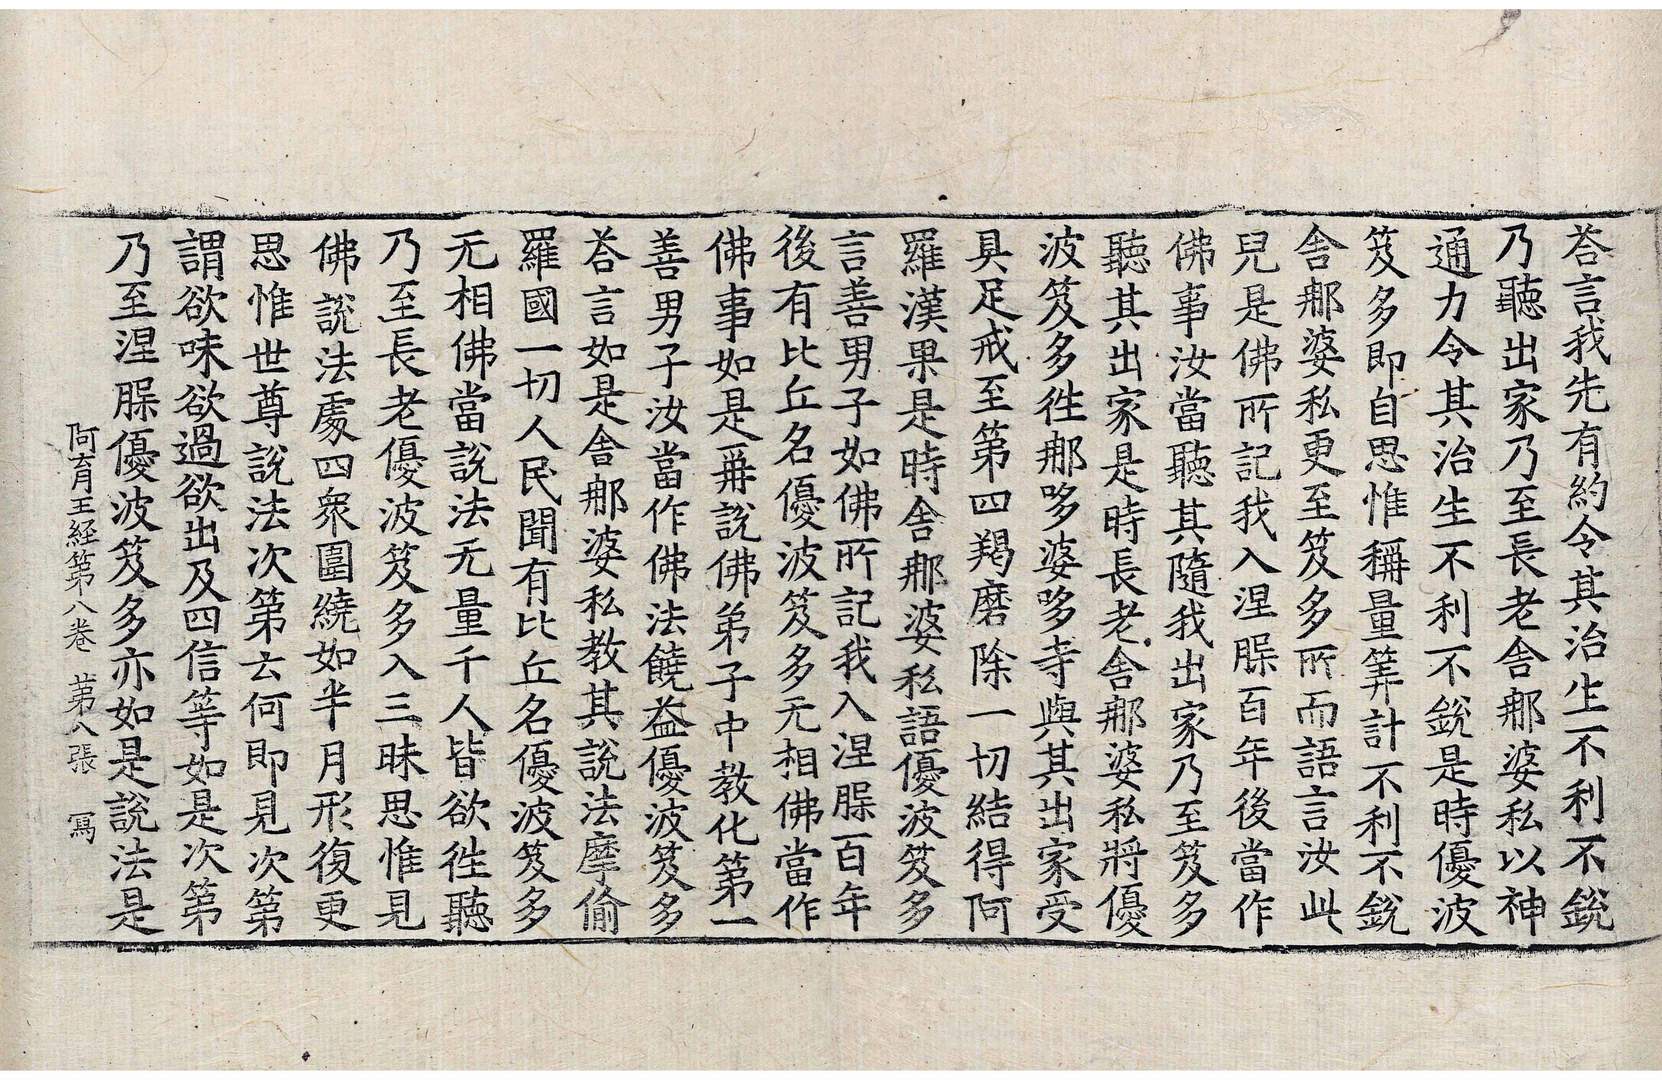 荅言我先有約令其治生不利不銳
乃聽出家乃至長老舍那婆私以神
通力令其治生不利不銳是時優波
笈多即自思惟稱量筭計不利不銳
舍那婆私更至笈多所而語言汝此
兒是佛所記我入涅脲百年後當作
佛事汝當聽其隨我出家乃至笈多
聽其出家是時長老舍那婆私將優
波笈多往那哆婆哆寺與其出家受
具足戒至第四羯磨除一切結得阿
羅漢果是時舍那婆私語優波笈多
言善男子如佛所記我入涅脲百年
後有比丘名優波笈多无相佛當作
佛事如是再說佛弟子中教化第一
善男子汝當作佛法饒益優波笈多
荅言如是舍那婆私教其說法摩偷
羅國一切人民聞有比丘名優波笈多
无相佛當說法无量千人皆欲往聽
乃至長老優波笈多入三昧思惟見
佛說法處四衆圍繞如半月形復更
思惟世尊說法次第云何即見次第
謂欲味欲過欲出及四信等如是次第
乃至涅脲優波笈多亦如是說法是
阿育王經第八卷 第八張 寫